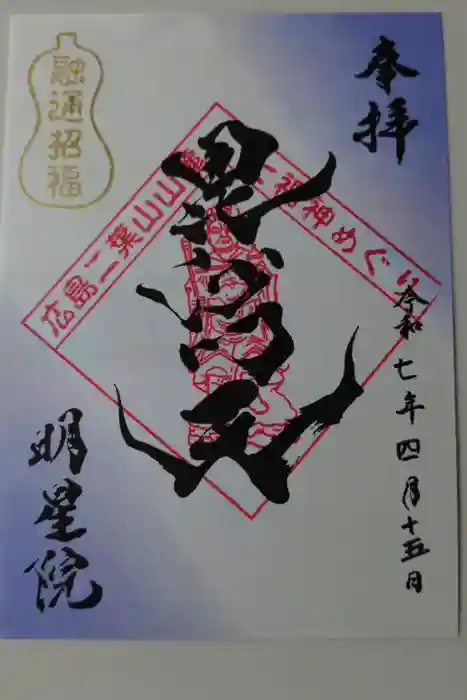 奉拝
令和七年四月十五日
毘沙門天
広島二葉山山麓七福神めぐり
融通招福
明星院